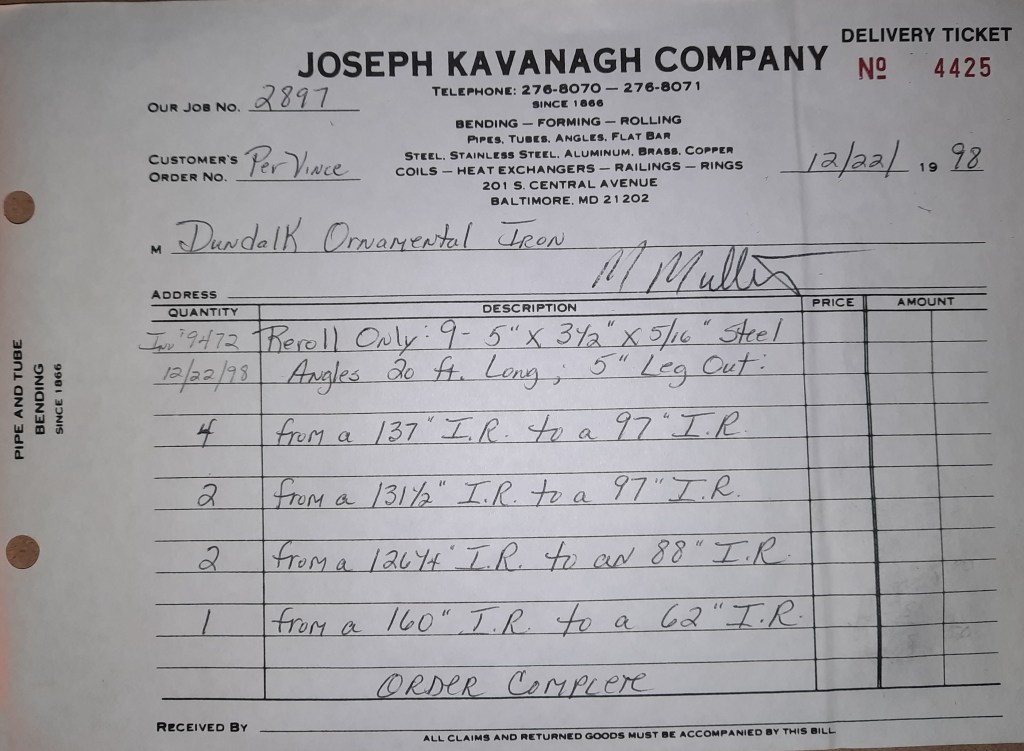 DELIVERY TICKET
JOSEPH KAVANAGH COMPANY
Nº 4425
TELEPHONE: 276-8070 — 276-8071
SINCE 1866
OUR JOB NO. 2897
BENDING — FORMING — ROLLING
PIPES, TUBES, ANGLES, FLAT BAR
STEEL, STAINLESS STEEL, ALUMINUM, BRASS, COPPER
COILS — HEAT EXCHANGERS — RAILINGS — RINGS
201 S. CENTRAL AVENUE
BALTIMORE, MD 21202
CUSTOMER'S
ORDER NO. Per Vince
12/22/ 19 98
M Dundalk Ornamental Iron
ADDRESS
QUANTITY DESCRIPTION PRICE AMOUNT
Inv # 9472 Reroll Only: 9 - 5" X 3 1/2" X 5/16" Steel
12/22/98 Angles 20 ft. Long; 5" Leg Out:
4 from a 137" I.R. to a 97" I.R.
2 from a 131 1/2" I.R. to a 97" I.R.
2 from a 126 1/4" I.R. to an 88" I.R.
1 from a 160" I.R. to a 62" I.R.
ORDER COMPLETE
RECEIVED BY
ALL CLAIMS AND RETURNED GOODS MUST BE ACCOMPANIED BY THIS BILL
PIPE AND TUBE
BENDING
SINCE 1866